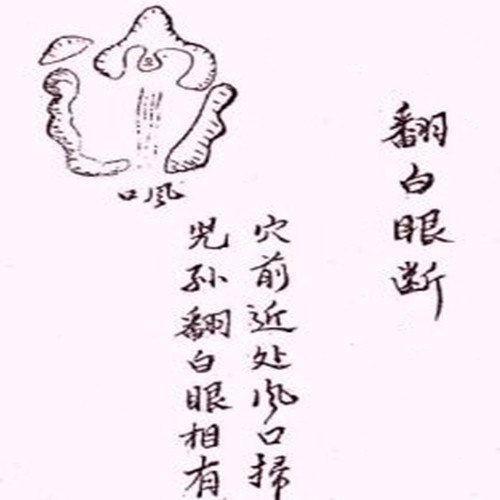 翻白眼断
穴前近处风口掃
児孙翻白眼相有
口风